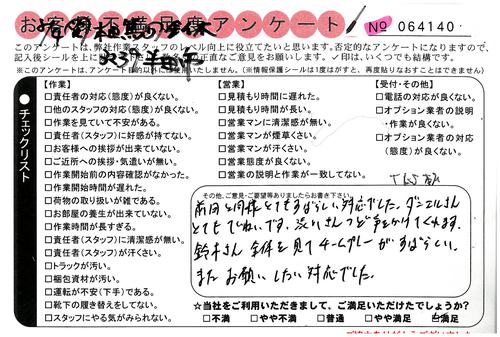 お客様不満足度アンケート
No 064140
このアンケートは、弊社作業スタッフのレベル向上に役立てたいと思います。否定的なアンケートになりますので、
※このアンケートは、アンケート目的以外には使用いたしません。(※情報保護シールは1度がすと、再度貼りなおすことはできません)
チェックリスト
【作業】
□責任者の対応(態度)が良くない。
□他のスタッフの対応(態度)が良くない。
□作業を見ていて不安がある。
□責任者(スタッフ)に好感が持てない。
□お客様への挨拶が出来ていない。
□ご近所への挨拶・気遣いが無い。
□作業開始前の内容確認がなかった。
□作業開始時間が遅れた。
□荷物の取り扱いが雑である。
□お部屋の養生が出来ていない。
□作業時間が長すぎる。
□責任者(スタッフ)に清潔感が無い。
□責任者(スタッフ)が汗くさい。
□トラックが汚い。
□梱包資材が汚い。
□運転が不安(下手)である。
□靴下の履き替えをしてない。
□スタッフにやる気がみられない。
【営業】
□見積もり時間に遅れた。
□見積もり時間が長い。
□営業マンに清潔感が無い。
□営業マンが煙草くさい。
□営業マンが汗くさい。
□営業態度が良くない。
□営業の説明と作業が一致してない。
【受付・その他】
□電話の対応が良くない。
□オプション業者の説明
・作業が良くない。
□オプション業者の対応
(態度)が良くない。
その他、ご意見・ご要望等ありましたらお書き下さい。
前回と同様とてもすばらしい対応でした。ダニエルさん
とてもていねいです。渋いさん つど声をかけてくれます。
鈴木さん 全体を見てチームプレーがすばらしい。
またお願いしたい対応でした。
☆当社をご利用いただきまして、ご満足いただけたでしょうか?
□不満 □やや不満 □普通 □やや満足 ☑満足